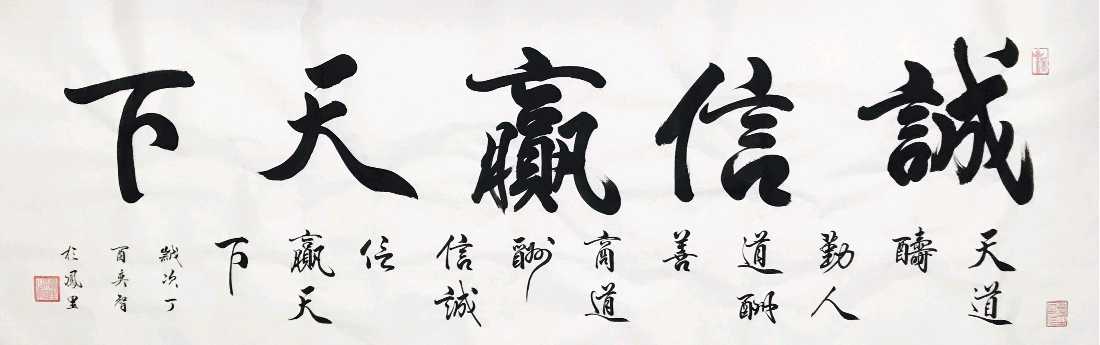 誠信贏天下
天道
醻
勤人
道酬
善
商道
酬
信誠
信
贏天
下
歲次丁
酉奕智
於鳳里